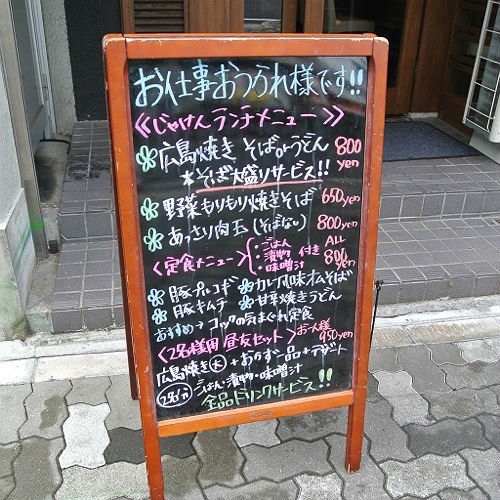 お仕事おつかれ様です!!
《じゃけんランチメニュー》
広島焼き そばorうどん 800yen
*そば大盛りサービス!!
野菜もりもり焼きそば 650yen
あっさり肉玉(そばなし) 800yen
〈定食メニュー〉 ・ごはん ・漬物 ・味噌汁 付き ALL 800yen
豚プルコギ カレー風味オムそば
豚キムチ 甘辛焼きうどん
おすすめ→コックの気まぐれ定食
〈2名様用 昼友セット〉お一人様 950yen
広島焼き(大)+おかず一品+デザート
ごはん・漬物・味噌汁
全品ドリンクサービス!!